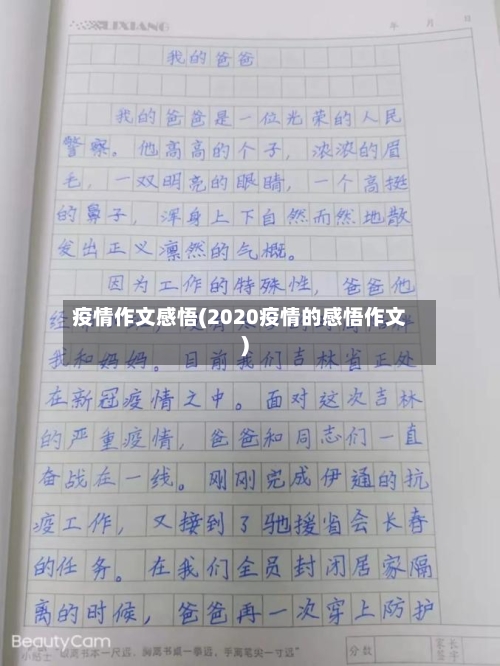 LIXIANG
年 月 日
我的爸爸
我的爸爸是一位光荣的人民
警察。他高高的个子,浓浓的眉
毛,一双明亮的眼睛,一个高挺
的鼻子,浑身上下自然而然地散
发出正义凛然的气概。
因为工作的特殊性,爸爸他
经
疫情作文感悟(2020疫情的感悟作文
)
我和妈妈。目前我们吉林省正处
在新冠疫情之中。面对这次吉林
的严重疫情,爸爸和同志们一直
奋战在一线。刚刚完成伊通的抗
疫工作,又接到了驰援省会长春
的任务。在我们全员封闭居家隔
离的时候,爸爸再一次穿上防护
BeautyCam
小贴士 眼离书本一尺远,胸离书桌一拳远,手离笔尖一寸远
分数
家长
签字